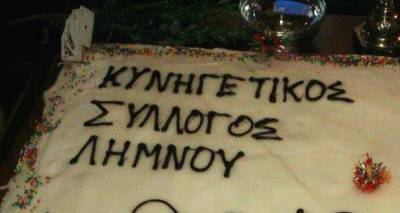 ΚΥΝΗΓΕΤΙΚΟΣ
ΣΥΛΛΟΓΟΣ
ΛΗΜΝΟΥ